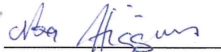 Noa Higgins